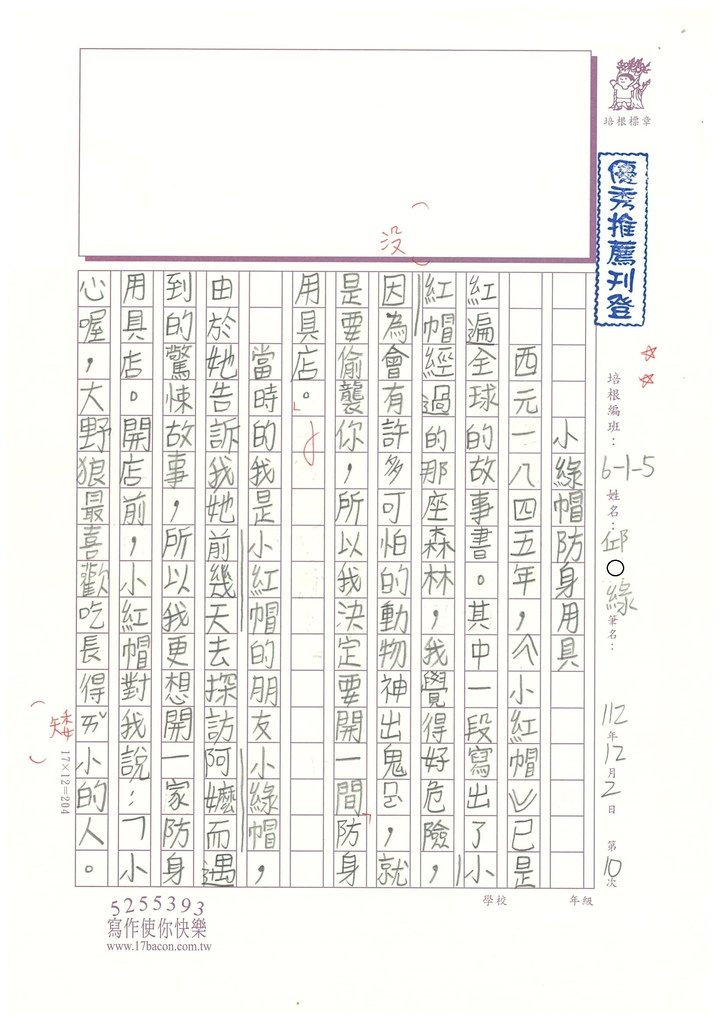 培根標章
優秀推薦刊登
培根編班：6-1-5 姓名：邱○綠 筆名：
112年12月2日 第10次
學校 年級
小綠帽防身用具
西元一八四五年，︿小紅帽﹀已是
紅遍全球的故事書。其中一段寫出了小
紅帽經過的那座森林，我覺得好危險，
因為會有許多可怕的動物神出鬼，就
没
是要偷襲你，所以我決定要開一間「防身
用具店。」
當時的我是小紅帽的朋友小綠帽，
由於她告訴我她前幾天去探訪阿嬤而遇
到的驚悚故事，所以我更想開一家防身
用具店。開店前，小紅帽對我說：「小
心喔，大野狼最喜歡吃長得ㄞˇ小的人。
矮
17×12=204
5255393
寫作使你快樂
www.17bacon.com.tw